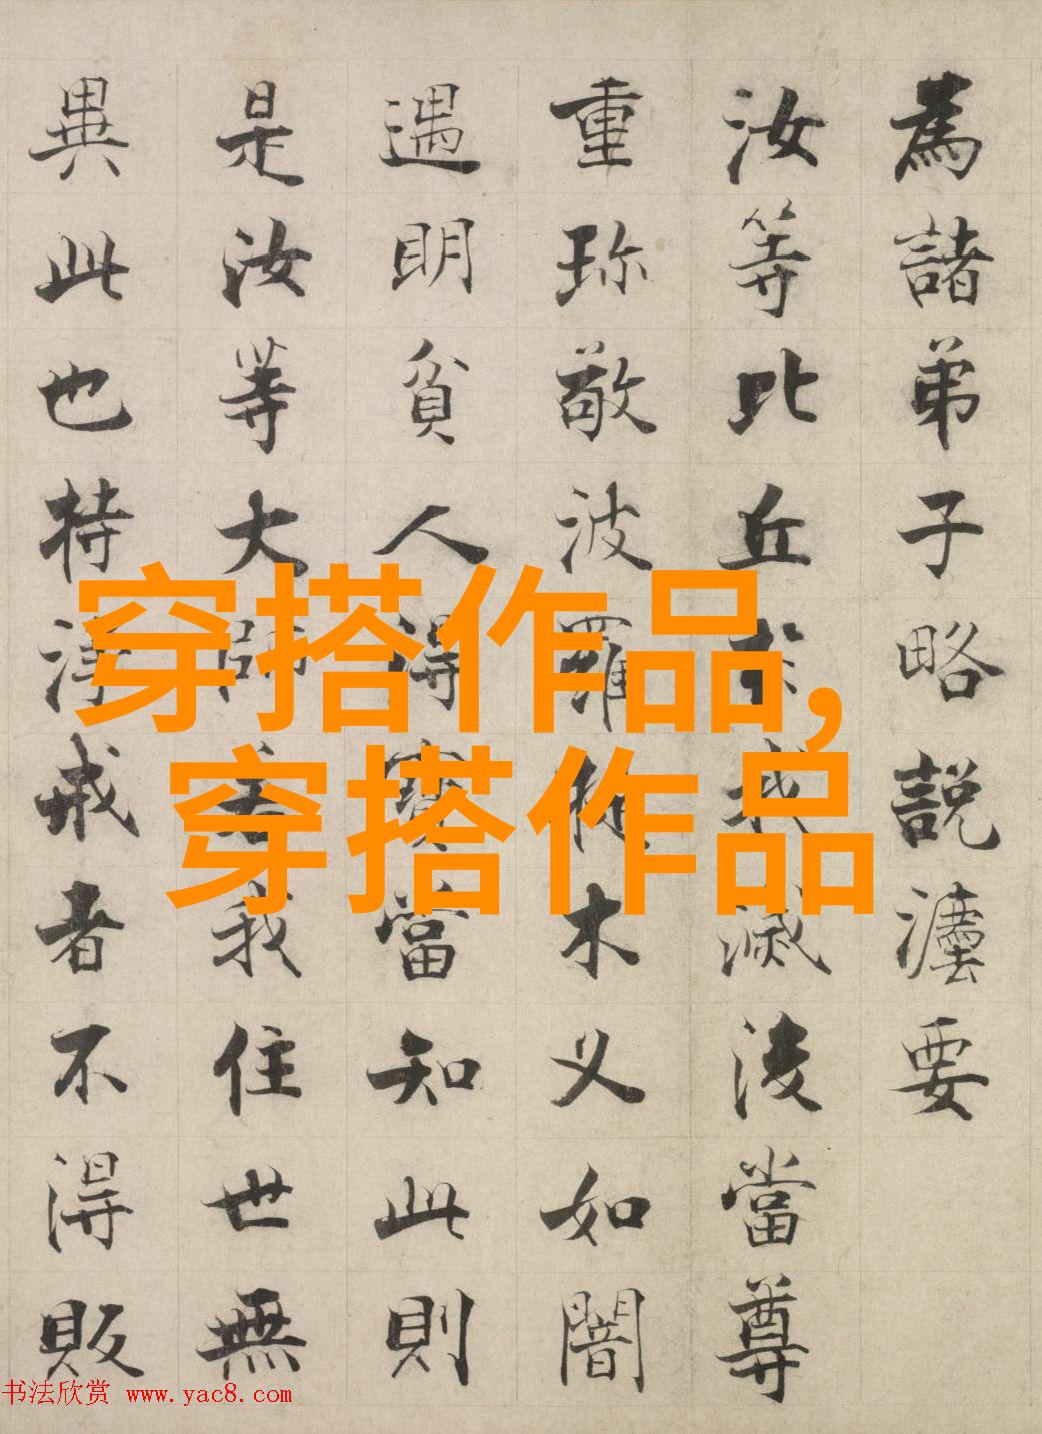 為諸弟子略説灋要
汝等比丘於我滅後當尊
重珎敬波羅提木义如闇
遇明貧人得寶當知此則
是汝等大師若我住世無
異此也持淨戒者不得販
穿搭作品,
穿搭作品
书法欣赏 www.yac8.com